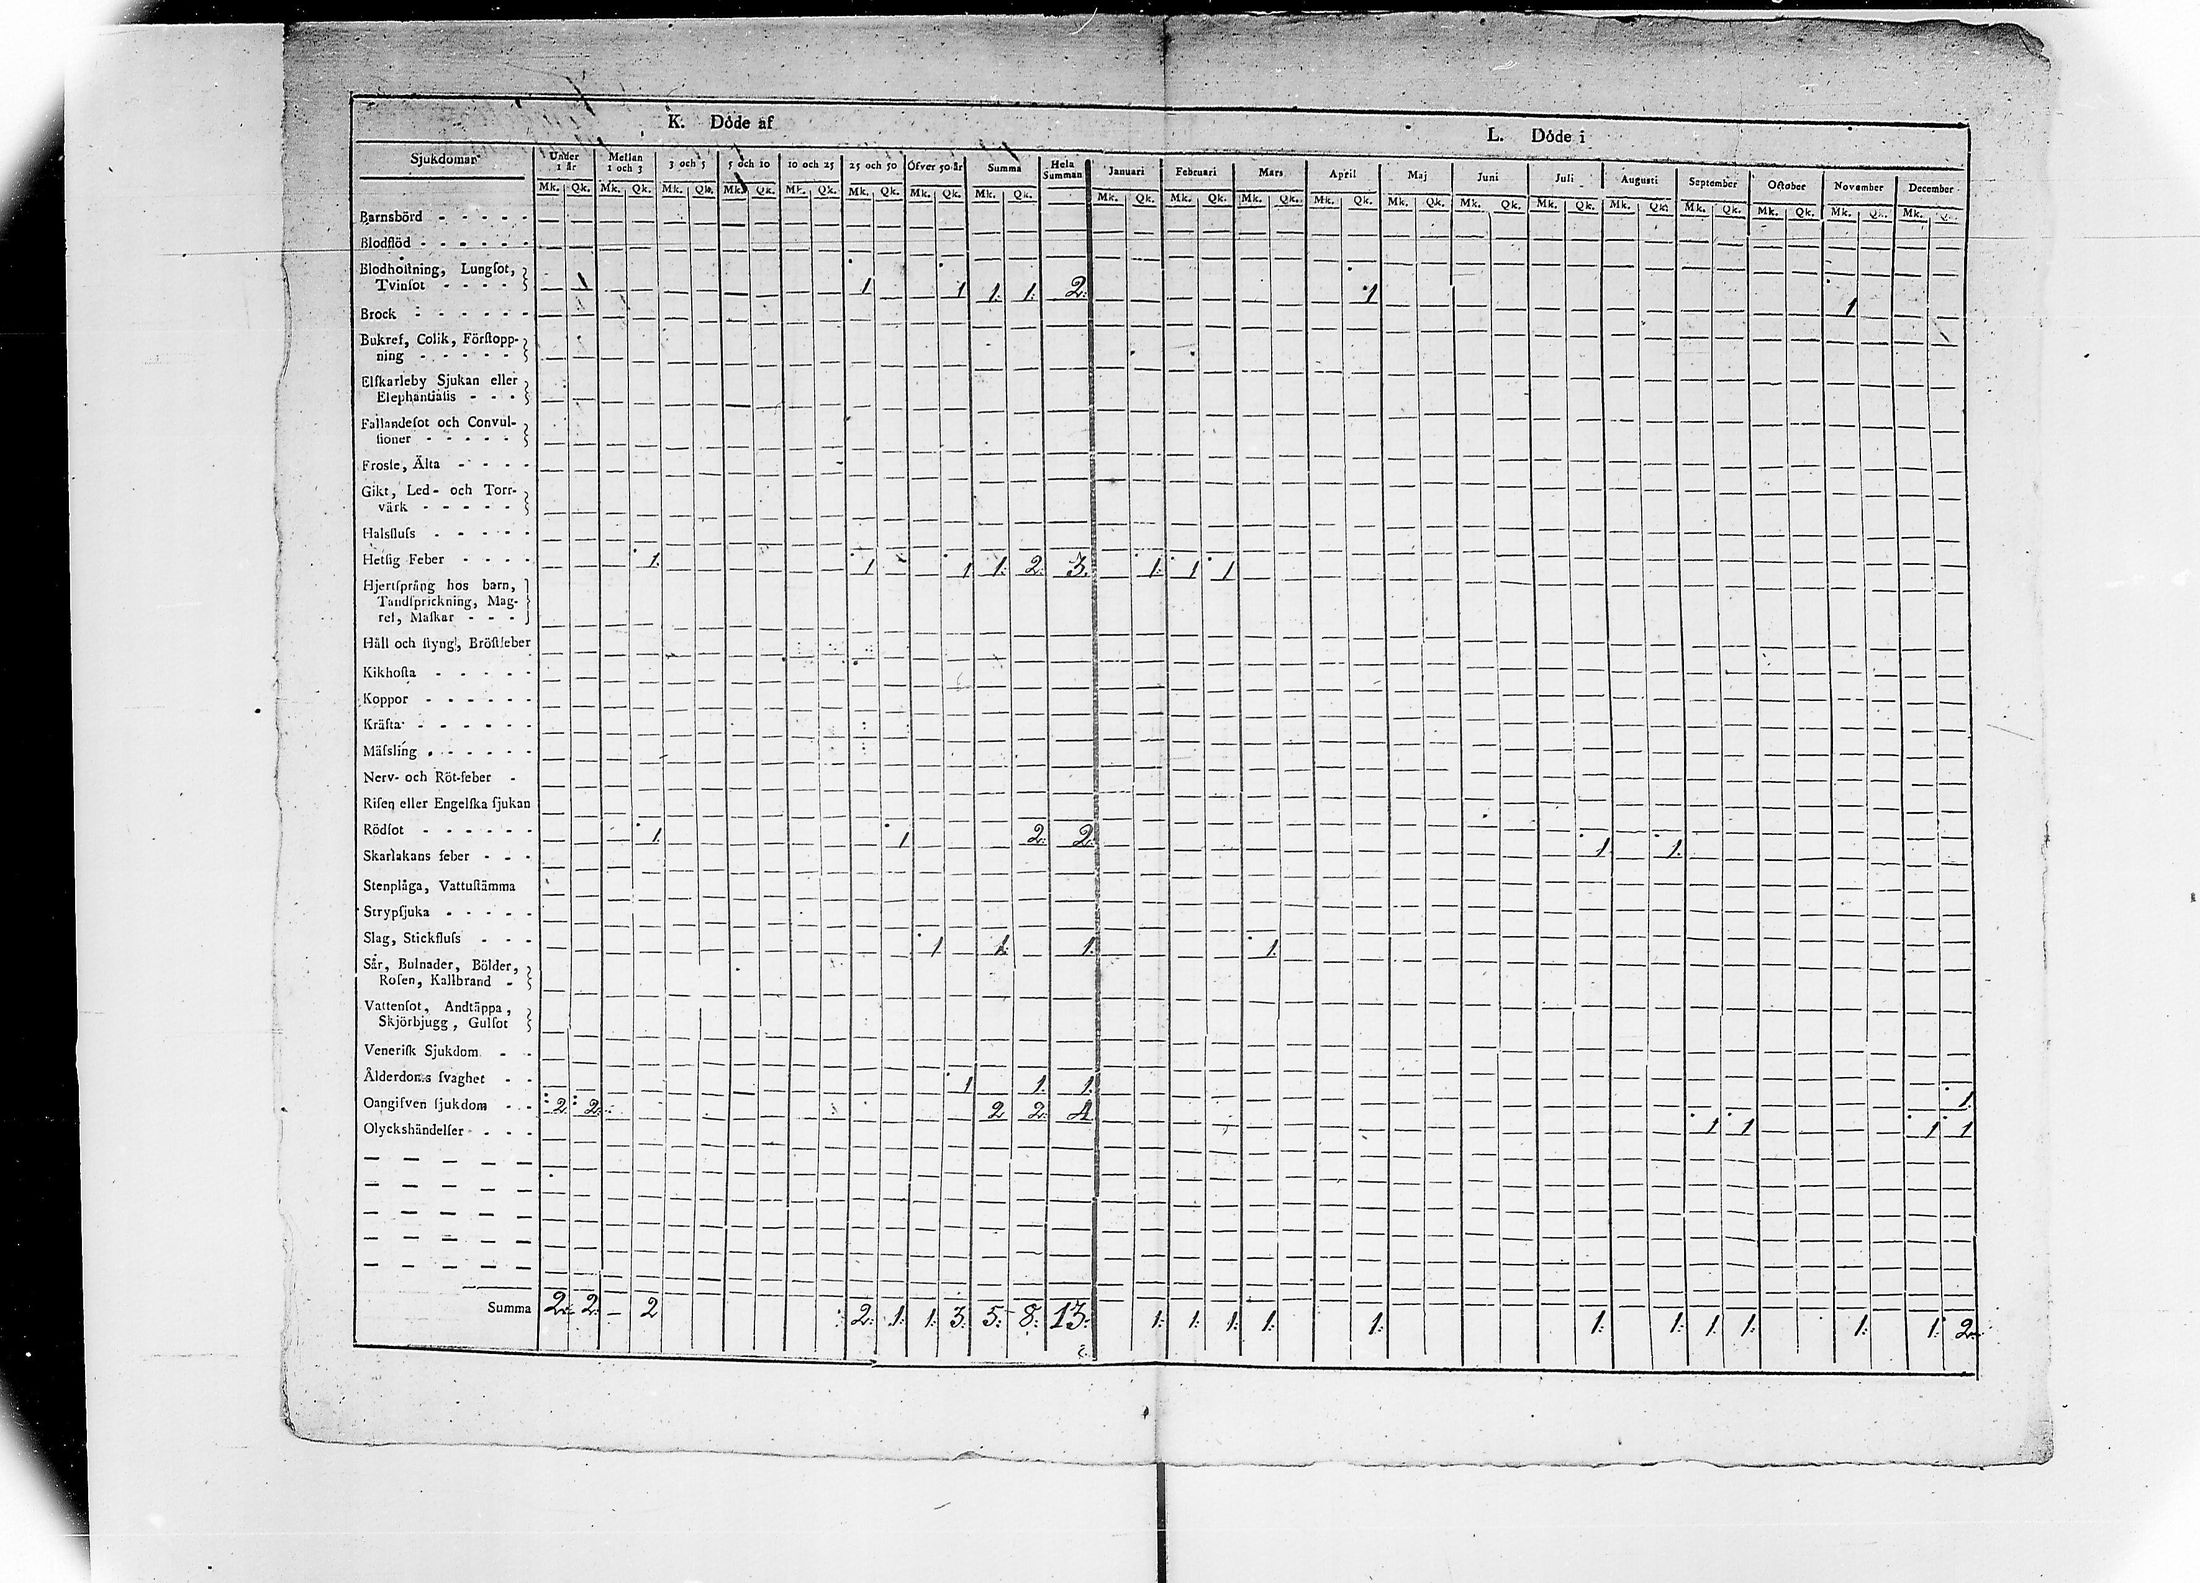 K. Dôde af
L. Dôde i
Sjukdomar Under 1 år Mellan 1 och 3 3 och 5 5 och 10 10 och 25 25 och 50 Öfver 50 år Summa Hela Summan Januari Februari Mars April Maj Juni Juli Augusti September October November December
Mk. Qk. Mk. Qk. Mk. Qk. Mk. Qk. Mk. Qk. Mk. Qk. Mk. Qk. Mk. Qk. Mk. Qk. Mk. Qk. Mk. Qk. Mk. Qk. Mk. Qk. Mk. Qk. Mk. Qk. Mk. Qk. Mk. Qk. Mk. Qk. Mk. Qk. Mk. Qk.
Barnsbörd - - - - -
Blodflöd - - - - - -
Blodhoſtning, Lungſot,
Tvinſot - - - - 1 1 1 1. 1. 2. 1 1
Brock - - - - - -
Bukref, Colik, Förſtopp-
ning - - - - -
Elſkarleby Sjukan eller
Elephantiaſis - - -
Fallandeſot och Convul-
ſioner - - - - -
Frosſe, Älta - - - -
Gikt, Led- och Torr-
värk - - - - -
Halsfluſs - - - - -
Hetſig Feber - - - - 1. 1 1 1. 2. 3. 1. 1 1
Hjertſprång hos barn,
Tandſprickning, Mag-
ref, Maſkar - - -
Håll och ſtyng, Bröſtfeber
Kikhoſta - - - - -
Koppor - - - - - -
Kräfta - - - - - -
Mäſsling - - - - - -
Nerv- och Röt-feber -
Riſen eller Engelſka ſjukan
Rödſot - - - - - - 1. 1 2. 2. 1 1.
Skarlakans feber - - -
Stenplåga, Vattuſtämma
Strypſjuka - - - - -
Slag, Stickfluſs - - - 1 1. 1. 1.
Sår, Bulnader, Bölder,
Roſen, Kallbrand -
Vattenſot, Andtäppa,
Skjörbjugg, Gulſot
Veneriſk Sjukdom - -
Ålderdoms ſvaghet - - 1 1. 1. 1.
Oangifven ſjukdom - - 2 2. 2 2. 4 1 1 1 1
Olyckshändelſer - - -
Summa 2. 2. - 2 2. 1. 1. 3. 5. 8. 13. 1. 1. 1. 1. 1. 1. 1. 1. 1. 1. 1. 2.